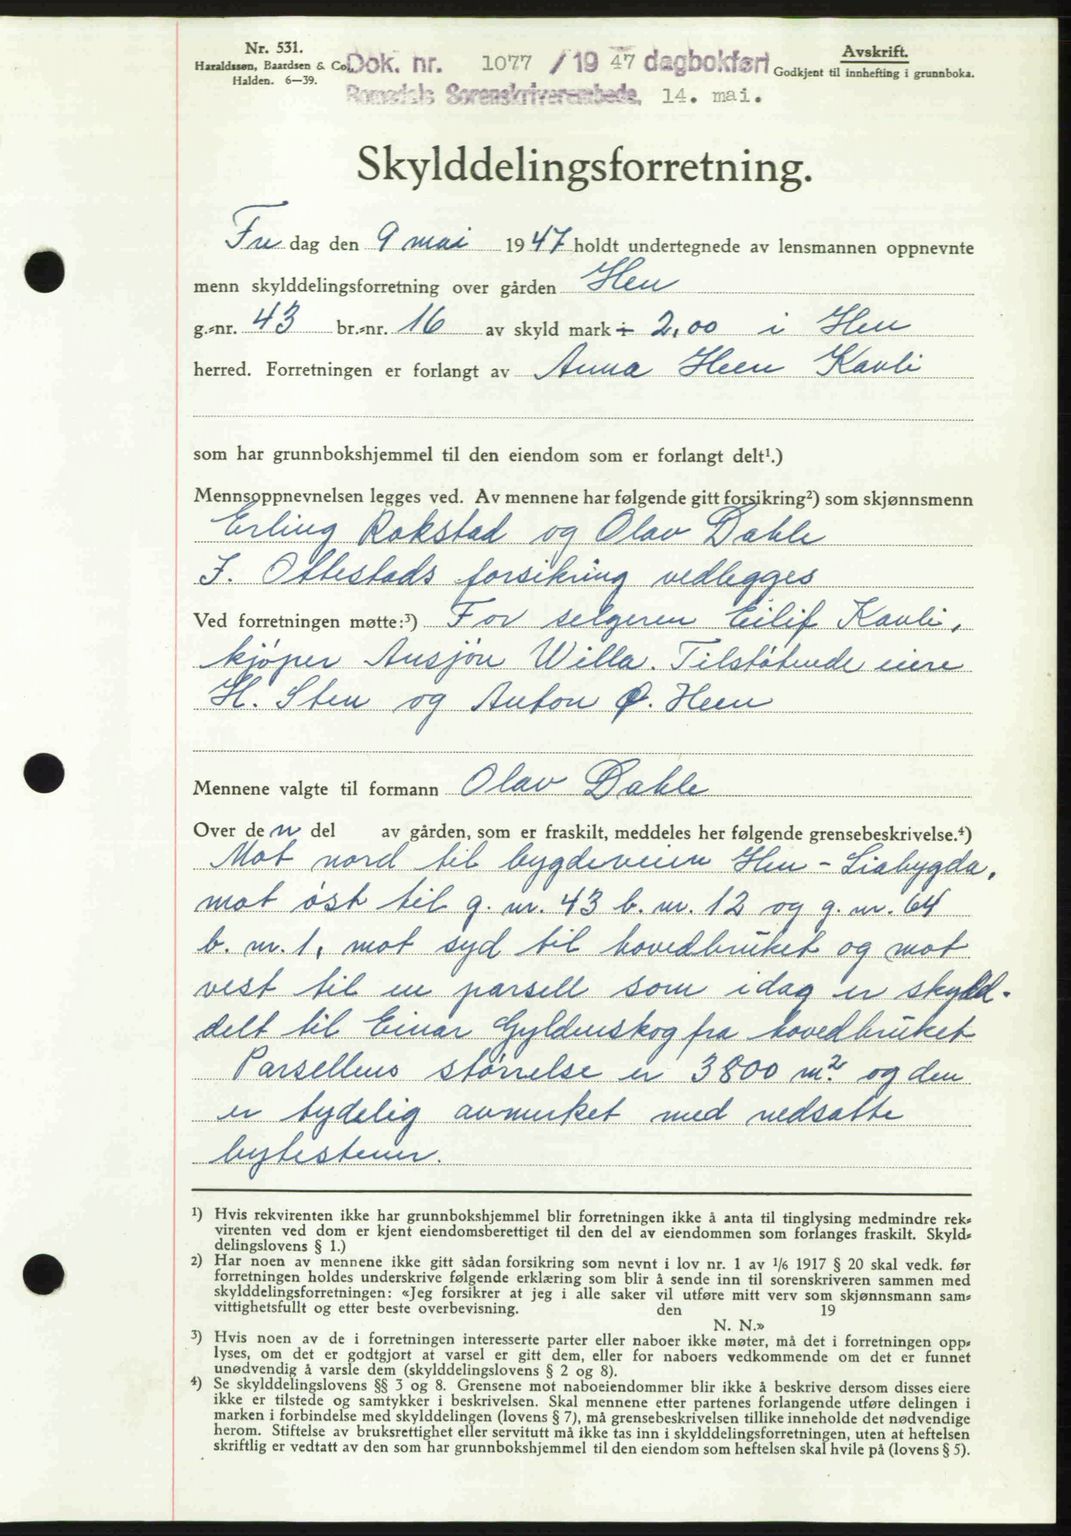 Nr. 531.
Haraldssøn, Baardsen & Co.
Halden. 6—39.
Dok. nr. 1077 / 19 47 dagbokført
Romsdals Sorenskriverembede, 14. mai.
Avskrift.
Godkjent til innhefting i grunnboka.
Skylddelingsforretning.
Fre dag den 9 mai 1947 holdt undertegnede av lensmannen oppnevnte
menn skylddelingsforretning over gården Hen
g.-nr. 43 br.-nr. 16 av skyld mark ÷ 2,00 i Hen
herred. Forretningen er forlangt av Anna Heen Kavli
som har grunnbokshjemmel til den eiendom som er forlangt delt¹.)
Mennsoppnevnelsen legges ved. Av mennene har følgende gitt forsikring²) som skjønnsmenn
Erling Rokstad og Olav Dahle
J. Ottestads forsikring vedlegges
Ved forretningen møtte:³) For selgeren Eilif Kavli,
kjøper Ansjön Willa. Tilstøtende eiere
H. Sten og Anton O. Heen
Mennene valgte til formann Olav Dahle
Over den del av gården, som er fraskilt, meddeles her følgende grensebeskrivelse.⁴)
Mot nord til bygdeveien Hen - Liabygda,
mot øst til g. nr. 43 b. nr. 12 og g. nr. 64
b. nr. 1, mot syd til hovedbruket og mot
vest til en parsell som idag er skyld-
delt til Einar Gyldenskog fra hovedbruket
Parsellens størrelse er 3800 m² og den
er tydelig avmerket med nedsatte
bytesteiner.
¹) Hvis rekvirenten ikke har grunnbokshjemmel blir forretningen ikke å anta til tinglysing medmindre rek-
virenten ved dom er kjent eiendomsberettiget til den del av eiendommen som forlanges fraskilt. Skyld-
delingslovens § 1.)
²) Har noen av mennene ikke gitt sådan forsikring som nevnt i lov nr. 1 av 1/6 1917 § 20 skal vedk. før
forretningen holdes underskrive følgende erklæring som blir å sende inn til sorenskriveren sammen med
skylddelingsforretningen: «Jeg forsikrer at jeg i alle saker vil utføre mitt verv som skjønnsmann sam-
vittighetsfullt og etter beste overbevisning. den 19
N. N.»
³) Hvis noen av de i forretningen interesserte parter eller naboer ikke møter, må det i forretningen opp-
lyses, om det er godtgjort at varsel er gitt dem, eller for naboers vedkommende om det er funnet
unødvendig å varsle dem (skylddelingslovens § 2 og 8).
⁴) Se skylddelingslovens §§ 3 og 8. Grensene mot naboeiendommer blir ikke å beskrive dersom disses eiere
ikke er tilstede og samtykker i beskrivelsen. Skal mennene etter partenes forlangende utføre delingen i
marken i forbindelse med skylddelingen (lovens § 7), må grensebeskrivelsen tillike inneholde det nødvendige
herom. Stiftelse av bruksrettighet eller servitutt må ikke tas inn i skylddelingsforretningen, uten at heftelsen
skriftlig er vedtatt av den som har grunnbokshjemmel til den eiendom som heftelsen skal hvile på (lovens § 5).